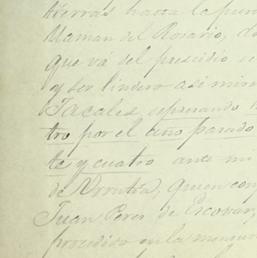 tierras hasta la pun
llaman del Rosario, d
que vá del presidio s
y ser lindero asi mis
Tacales, separando
tro por el año pasado
te y cuatro ante mi
de Urrutia, quien con
Juan Perez de Escovar,
procedido en la mensu